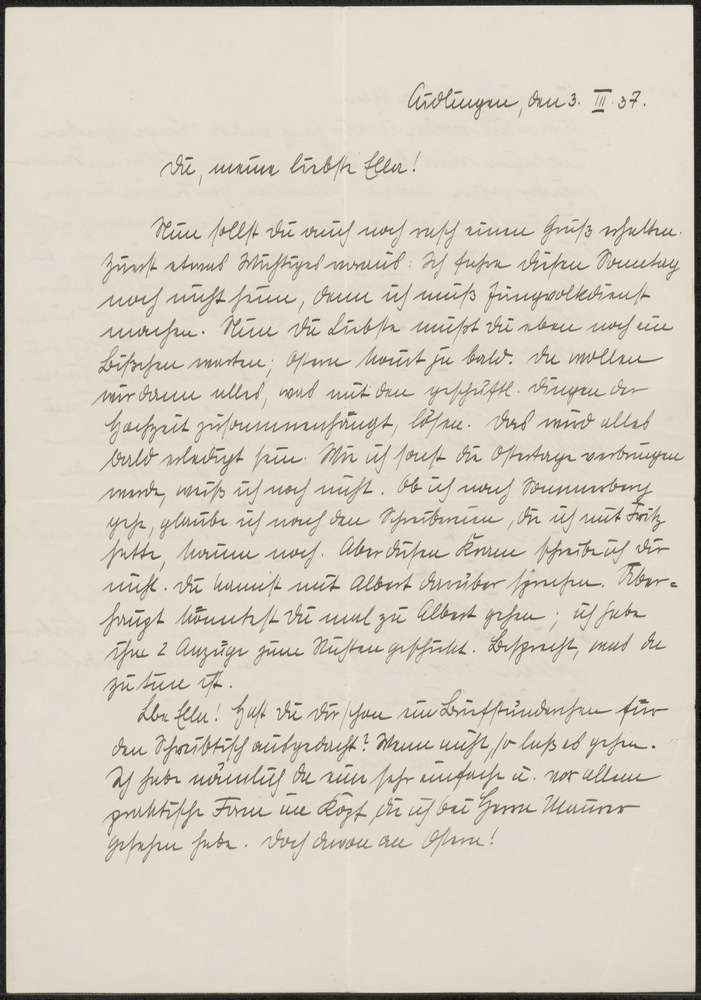 Aidlingen, den 3. III. 37.
Du, meine liebste Ella!
Nun sollst Du auch noch rasch einen Gruß erhalten.
Zuerst etwas Wichtiges voraus: Ich fahre diesen Sonntag
noch nicht heim, denn ich muß Jungvolkdienst
machen. Nun Du Liebste mußt Du eben noch ein
bißchen warten; Ostern kommt ja bald. Da wollen
wir dann alles, was mit den geschäftl. Dingen der
Hochzeit zusammenhängt, lösen. Das wird alles
bald erledigt sein. Wie ich sonst die Ostertage verbringen
werde, weiß ich noch nicht. Ob ich nach Sonnenberg
gehe, glaube ich nach den Schreibereien, die ich mit Fritz
hatte, kaum noch. Aber diesen Kram schreibe ich Dir
nicht. Du kannst mit Albert darüber sprechen. Über=
haupt könntest Du mal zu Albert gehen; ich habe
ihm 2 Anzüge zum Richten geschickt. Besprecht, was da
zu tun ist.
Lbe Ella! Hast Du Dir schon ein Briefständerchen für
den Schreibtisch ausgedacht? Wenn nicht, so laß es gehen.
Ich habe nämlich da eine sehr einfache u. vor allem
praktische Form im Kopf, die ich bei Herrn Maurer
gesehen habe. Doch davon an Ostern!